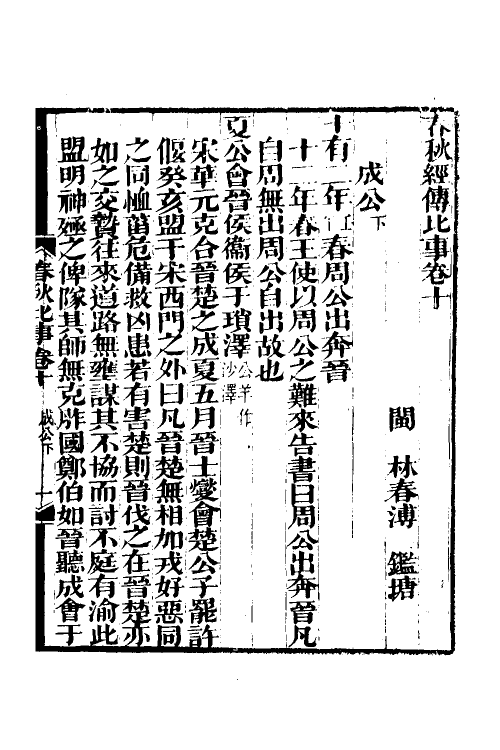 春秋經傳比事卷十
閩 林春溥 鑑塘
成公下
十有二年春周公出奔晉
十二年春王使以周公之難來告書曰周公出奔晉凡
自周無出周公自出故也
夏公會晉侯衞侯于瑣澤公羊作沙澤
宋華元克合晉楚之成夏五月晉士燮會楚公子罷許
偃癸亥盟于宋西門之外曰凡晉楚無相加戎好惡同
之同恤菑危備救凶患若有害楚則晉伐之在晉楚亦
如之交贄往來道路無壅謀其不協而討不庭有渝此
盟明神殛之俾隊其師無克胙國鄭伯如晉聽成會于
春秋比事 卷十 成公下 一